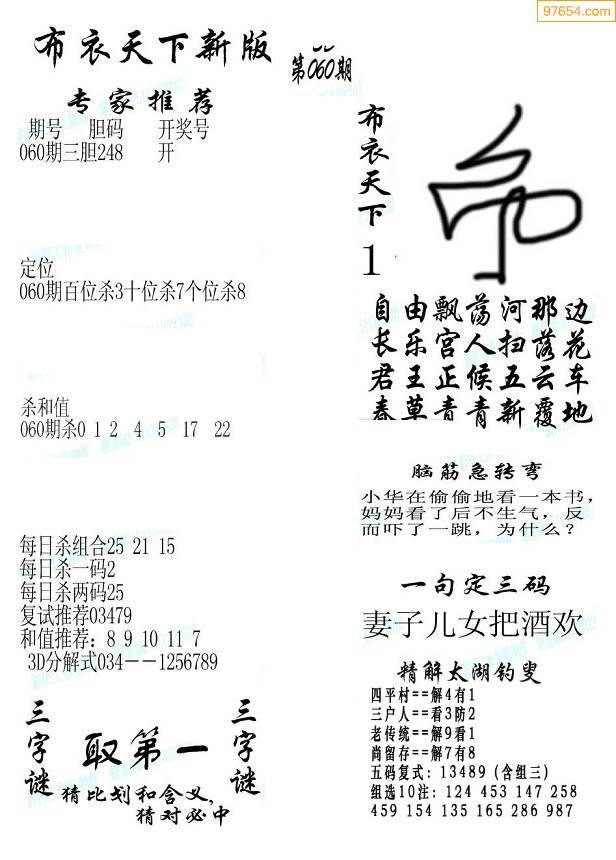 97654.com
布衣天下新版
第060期
专家推荐
期号 胆码 开奖号
060期三胆248 开
定位
060期百位杀3十位杀7个位杀8
杀和值
060期杀0 1 2 4 5 17 22
每日杀组合25 21 15
每日杀一码2
每日杀两码25
复试推荐03479
和值推荐：8 9 10 11 7
3D分解式034－－1256789
三字谜
取第一
三字谜
猜比划和含义，
猜对必中
布衣天下
1
自由飘荡河那边
长乐宫人扫落花
君王正候五云车
春草青青新覆地
脑筋急转弯
小华在偷偷地看一本书，
妈妈看了后不生气，反
而吓了一跳，为什么？
一句定三码
妻子儿女把酒欢
精解太湖钓叟
四平村==解4有1
三户人==看3防2
老传统==解9看1
尚留存==解7有8
五码复式：13489（含组三）
组选10注：124 453 147 258
459 154 135 165 286 987